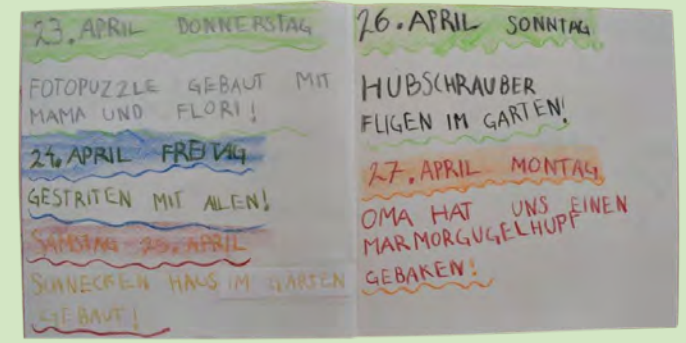 23. APRIL DONNERSTAG
FOTOPUZZLE GEBAUT MIT
MAMA UND FLORI!
24. APRIL FREITAG
GESTRITEN MIT ALLEN!
SAMSTAG 25. APRIL
SCHNECKEN HAUS IM GARTEN
GEBAUT!
26. APRIL SONNTAG
HUBSCHRAUBER
FLIGEN IM GARTEN!
27. APRIL MONTAG
OMA HAT UNS EINEN
MARMORGUGELHUPF
GEBAKEN!